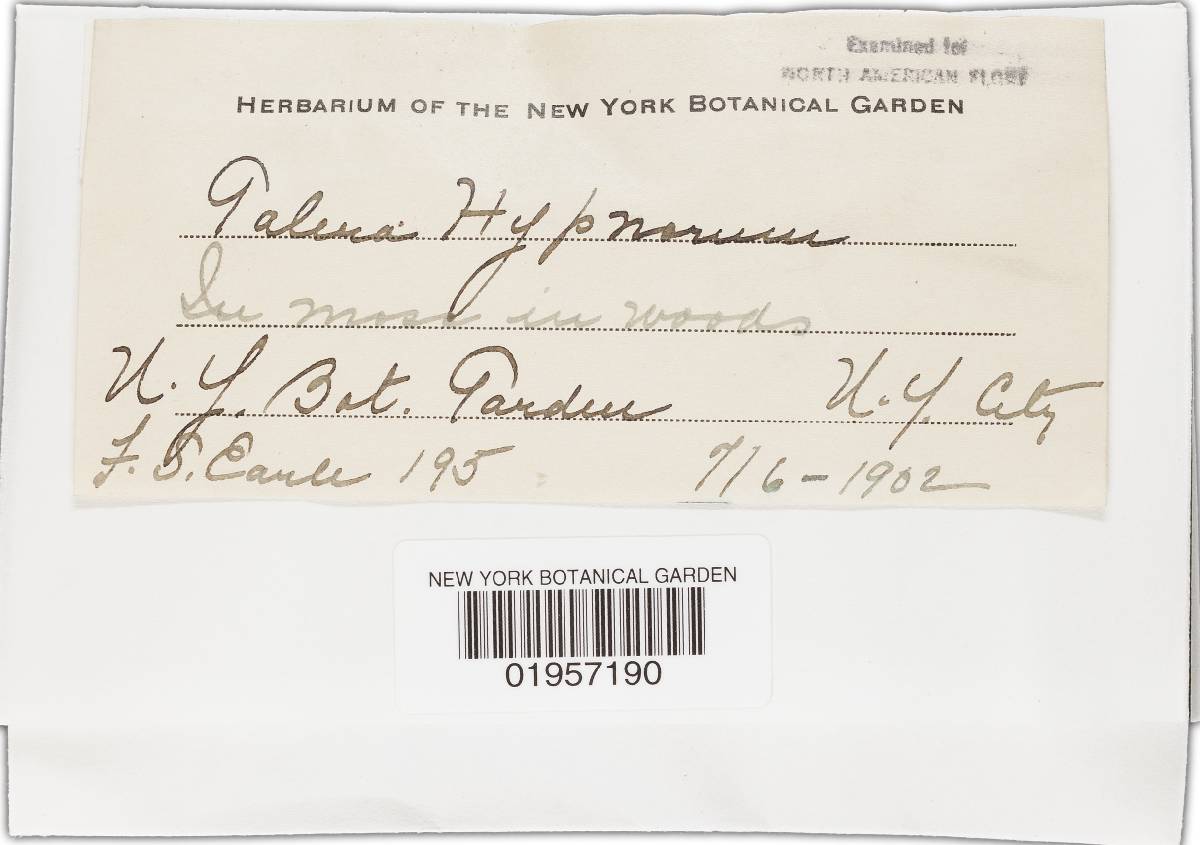 Examined for
NORTH AMERICAN FLORA
HERBARIUM OF THE NEW YORK BOTANICAL GARDEN
Galera Hypnorum
In moss in woods
N. Y. Bot. Garden N. Y. City
F. S. Earle 195 7/6-1902
NEW YORK BOTANICAL GARDEN
01957190